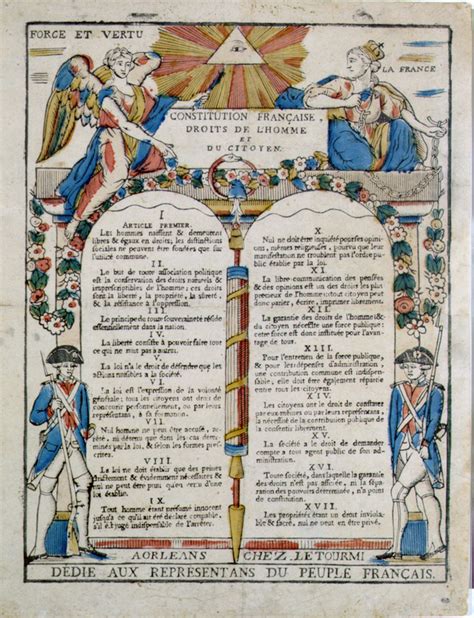 FORCE ET VERTU
LA FRANCE
CONSTITUTION FRANÇAISE,
DROITS DE L'HOMME
ET
DU CITOYEN.
I
ARTICLE PREMIER.
Les hommes naissent & demeurent
libres & égaux en droits; les distinctions
sociales ne peuvent être fondées que sur
l'utilité commune.
II.
Le but de toute association politique
est la conservation des droits naturels &
imprescriptibles de l'homme; ces droits
sont la liberté, la propriété, la sûreté,
& la résistance à l'oppression.
III.
Le principe de toute souveraineté réside
essentiellement dans la nation.
IV.
La liberté consiste à pouvoir faire tout
ce qui ne nuit pas à autrui.
V.
La loi n'a le droit de défendre que les
actions nuisibles à la société.
VI.
La loi est l'expression de la volonté
générale; tous les citoyens ont droit de
concourir personnellement, ou par leurs
représentans, à sa formation.
VII.
Nul homme ne peut être accusé, arrêté,
ni détenu que dans les cas déterminés
par la loi, & selon les formes prescrites.
VIII.
La loi ne doit établir que des peines
strictement & évidemment nécessaires &
nul ne peut être puni qu'en vertu d'une
loi établie.
IX.
Tout homme étant présumé innocent
jusqu'à ce qu'il ait été déclaré coupable,
s'il est jugé indispensable de l'arrêter.
X.
Nul ne doit être inquiété pour ses opinions,
mêmes religieuses, pourvu que leur
manifestation ne troublent pas l'ordre public
établie par la loi.
XI.
La libre communication des pensées
& des opinions est un des droits les plus
précieux de l'homme: tout citoyen peut
donc parler, écrire, imprimer librement.
XII.
La garantie des droits de l'homme & du
citoyen nécessite une force publique: cette
force est donc instituée pour l'avantage
de tous.
XIII.
Pour l'entretien de la force publique,
& pour les dépenses d'administration,
une contribution commune est indispensable,
elle doit être également répartie
entre tous les citoyens.
XIV.
Les citoyens ont le droit de constater
par eux mêmes ou par leurs représentans,
la nécessité de la contribution publique de
la consentir librement.
XV.
La société a le droit de demander
compte à tout agent public de son administration.
XVI.
Toute société, dans laquelle la garantie
des droits n'est pas assurée, ni la séparation
des pouvoirs déterminée, n'a point
de constitution.
XVII.
Les propriétés étant un droit inviolable
& sacré, nul ne peut en être privé.
A ORLEANS CHEZ LETOURMI
DÉDIÉ AUX REPRESENTANS DU PEUPLE FRANÇAIS.